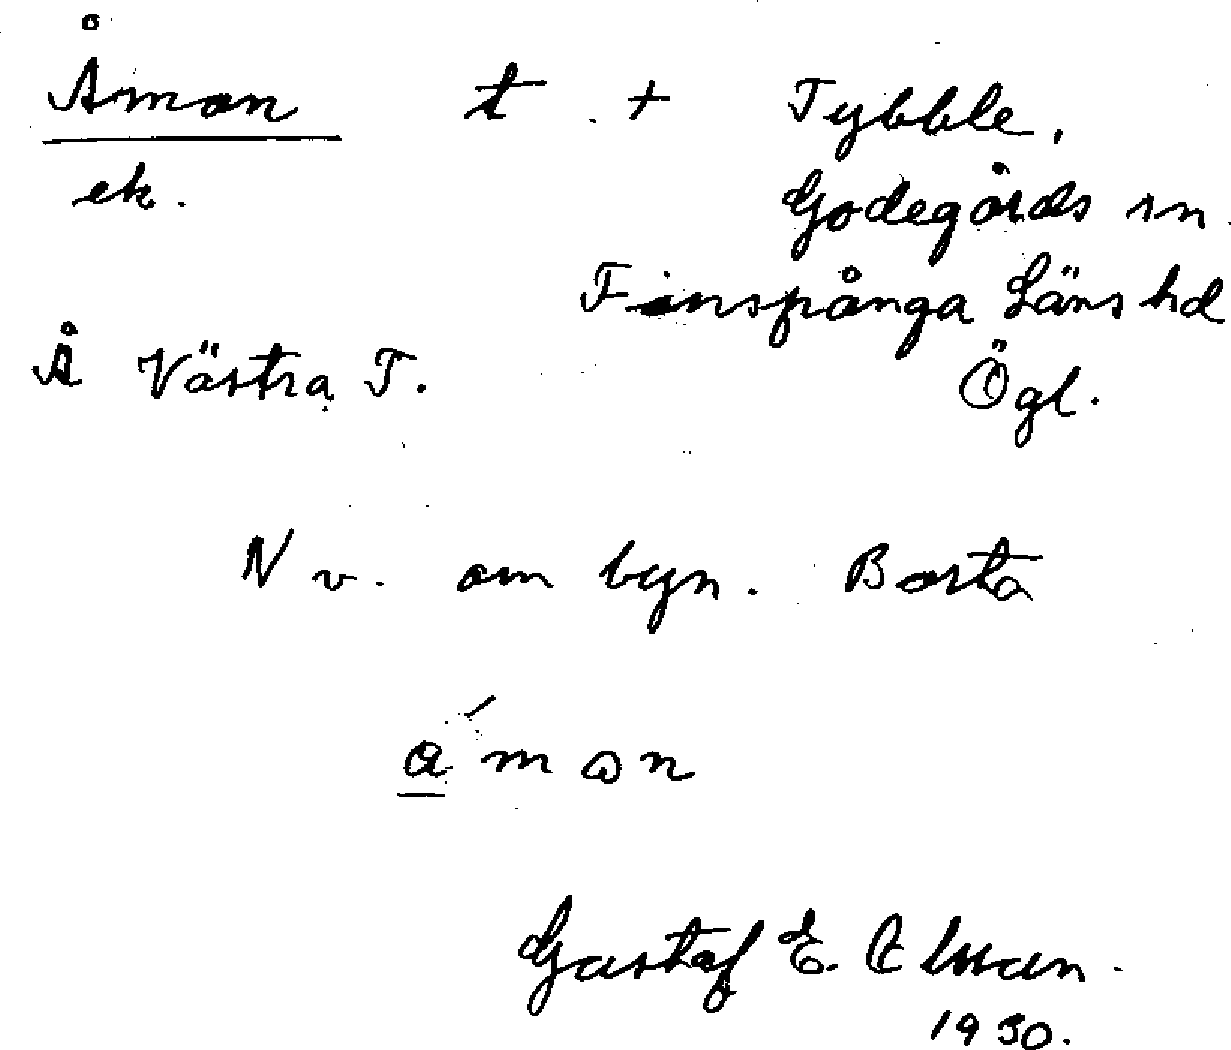 Åmon t + Tybble,
ek. Godegårds sn.
Finspånga Läns hd
Å Västra T. Ögl.
N v. om byn. Borta
a ́ m ɷ n
Gustaf E.
1930.